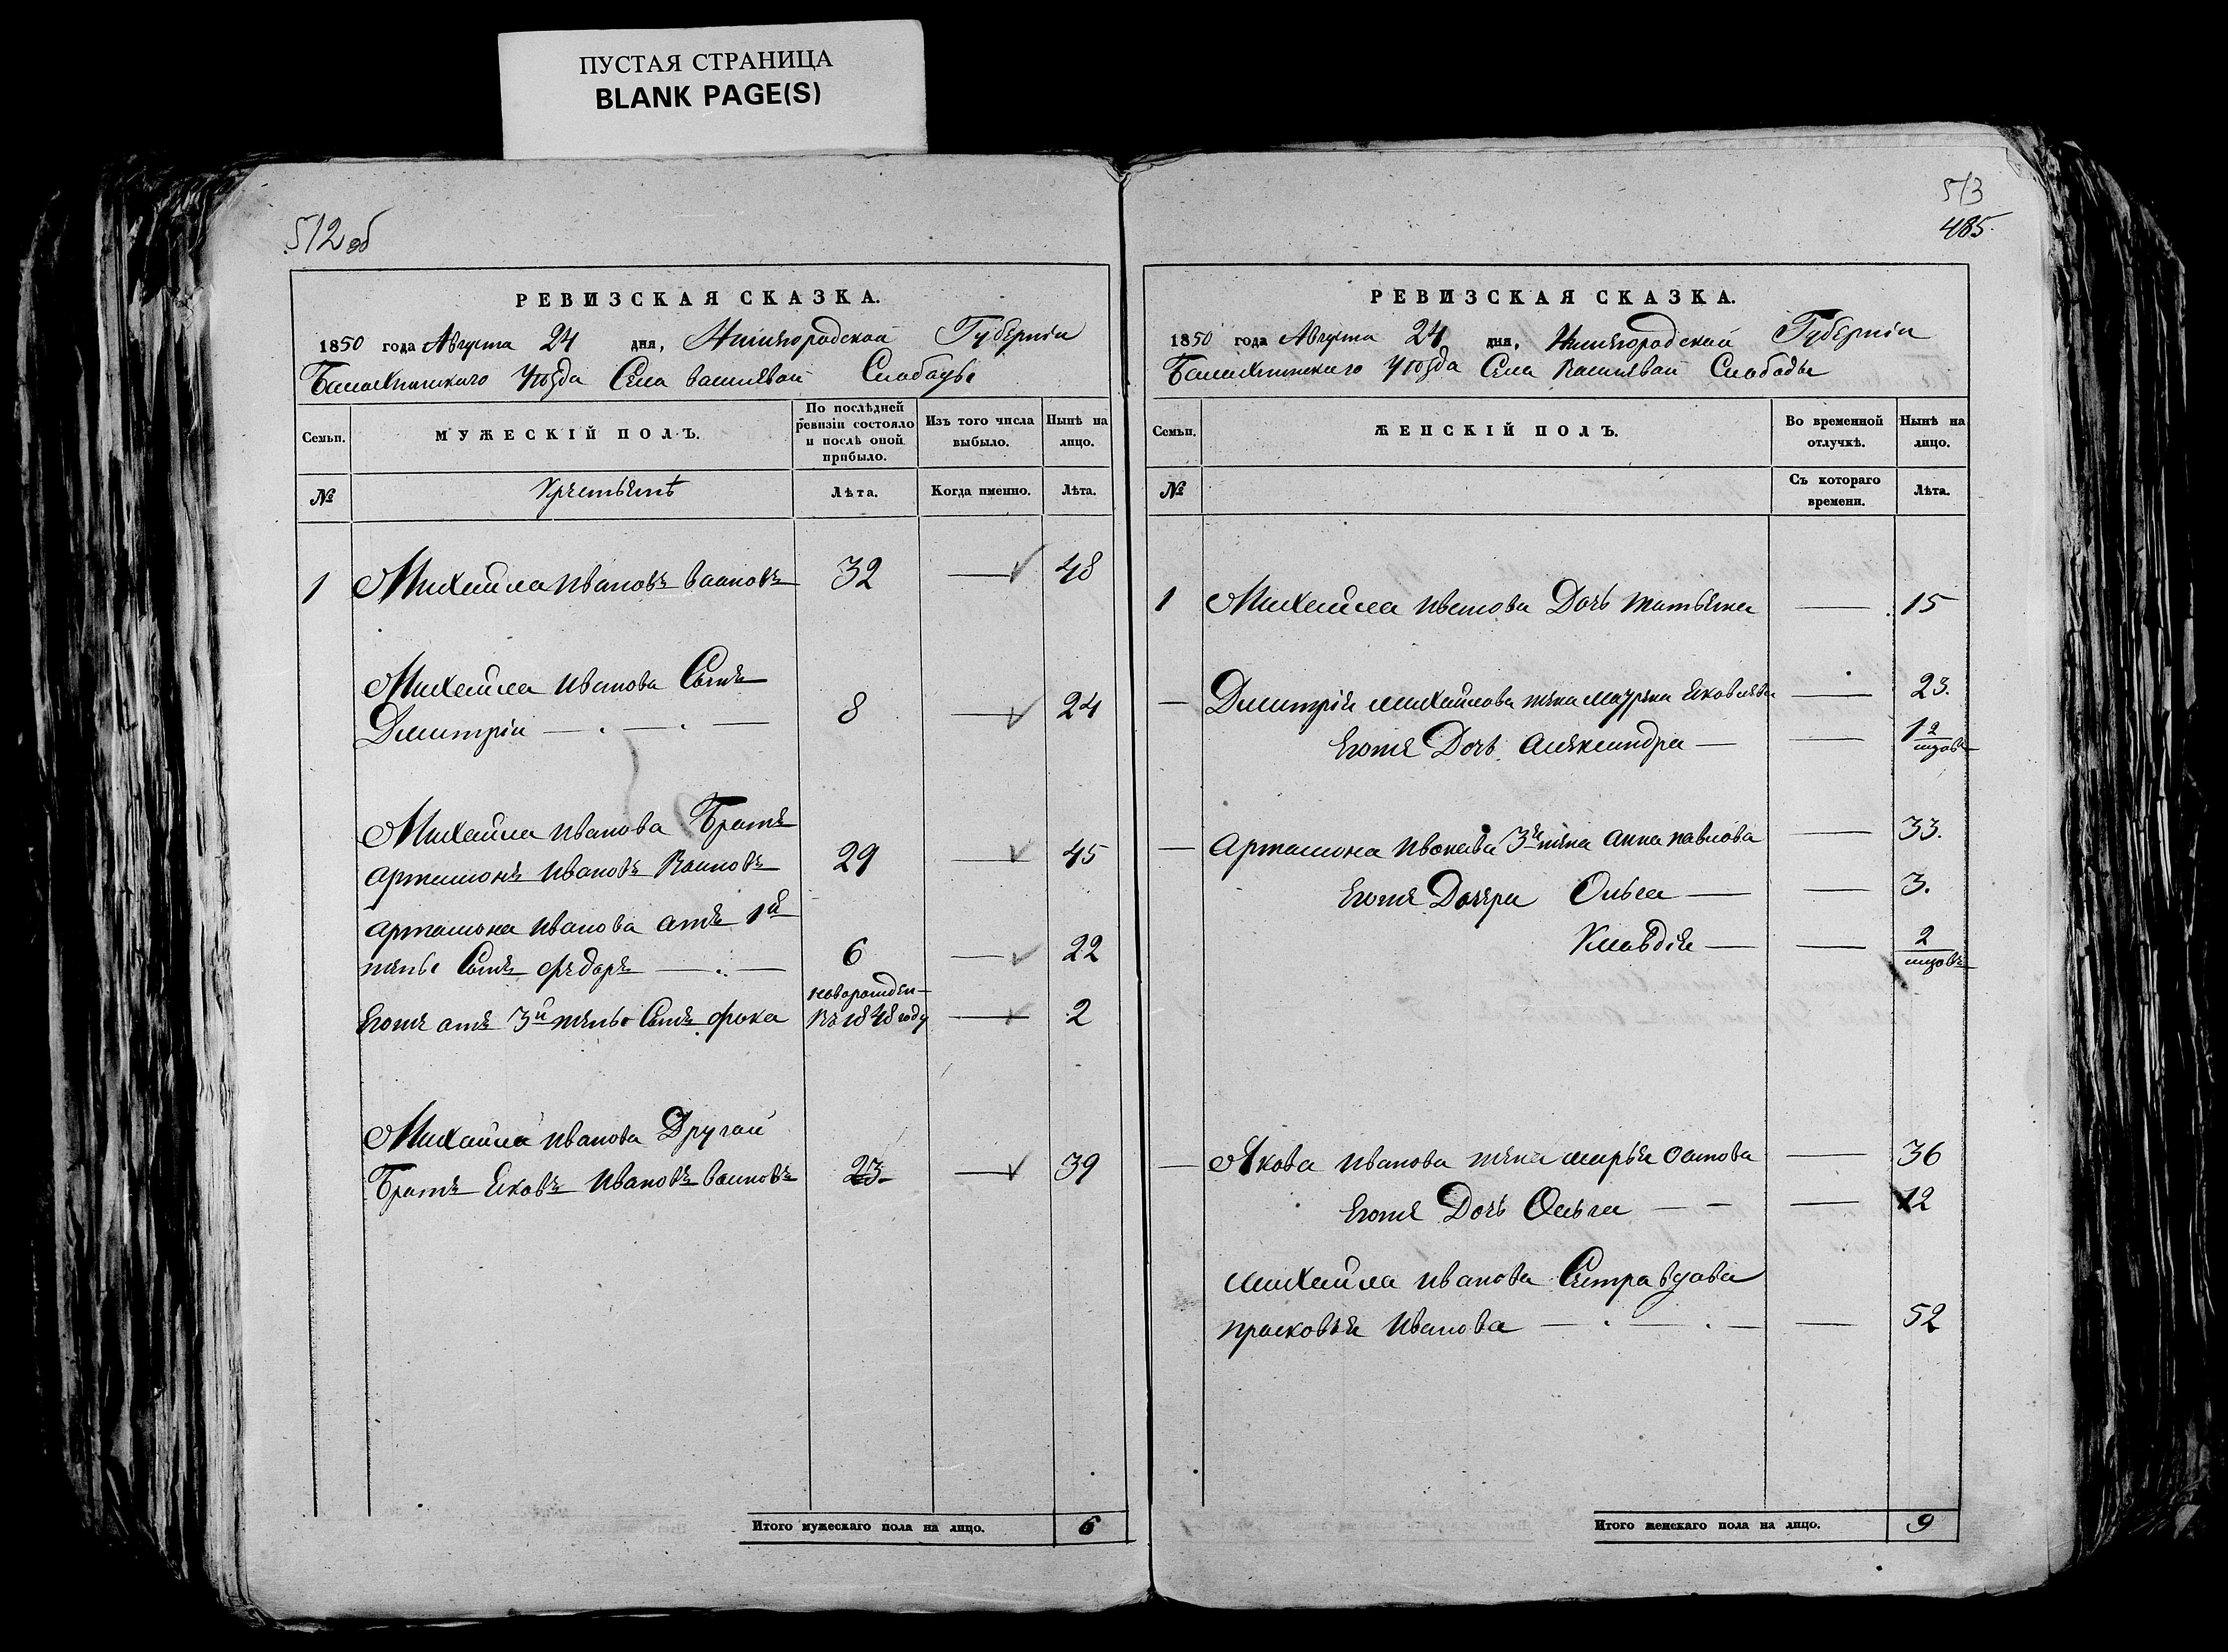 ПУСТАЯ СТРАНИЦА
BLANK PAGE(S)
512 об
РЕВИЗСКАЯ СКАЗКА.
1850 года Августа 24 дня, Нижегородской Губерніи
Балахнинскаго Уѣзда Села Васильевой Слободы
Семьи.
МУЖЕСКІЙ ПОЛЪ.
По послѣдней ревизіи состояло и послѣ оной прибыло.
Изъ того числа выбыло.
Нынѣ на лицо.
№
Лѣта.
Когда именно.
Лѣта.
1 Михайла Ивановъ 32 — 48
Михайла Иванова Сынъ
Дмитріи — 8 — 24
Михайла Иванова Братъ
Артамонъ Ивановъ 29 — 45
Артамона Иванова отъ 1й
жены Сынъ Федоръ — 6 — 22
новорожден
Егоже отъ 3й жены Сынъ Фока въ 1848 году — 2
Михайла Иванова Другой
Братъ Яковъ Ивановъ 23 — 39
Итого мужескаго пола на лицо. 6
513
485.
РЕВИЗСКАЯ СКАЗКА.
1850 года Августа 24 дня, Нижегородской Губерніи
Балахнинскаго Уѣзда Села Васильевой Слободы
Семьи.
ЖЕНСКІЙ ПОЛЪ.
Во временной отлучкѣ.
Нынѣ на лицо.
№
Съ котораго времени.
Лѣта.
1 Михайла Иванова Дочь Татьяна — 15
— Дмитрія Михайлова жена Яковлева — 23.
Егоже Дочь Александра — — 1/2
— Артамона Иванова 3я жена Анна Павлова — 33.
Егоже Дочери Ольга — — 3.
Клавдія — — 2
— Якова Иванова жена Марья Осипова — 36
Егоже Дочь Ольга — — — 12
Михайла Иванова Сестра вдова
Прасковья Иванова — — — 52
Итого женскаго пола на лицо. 9